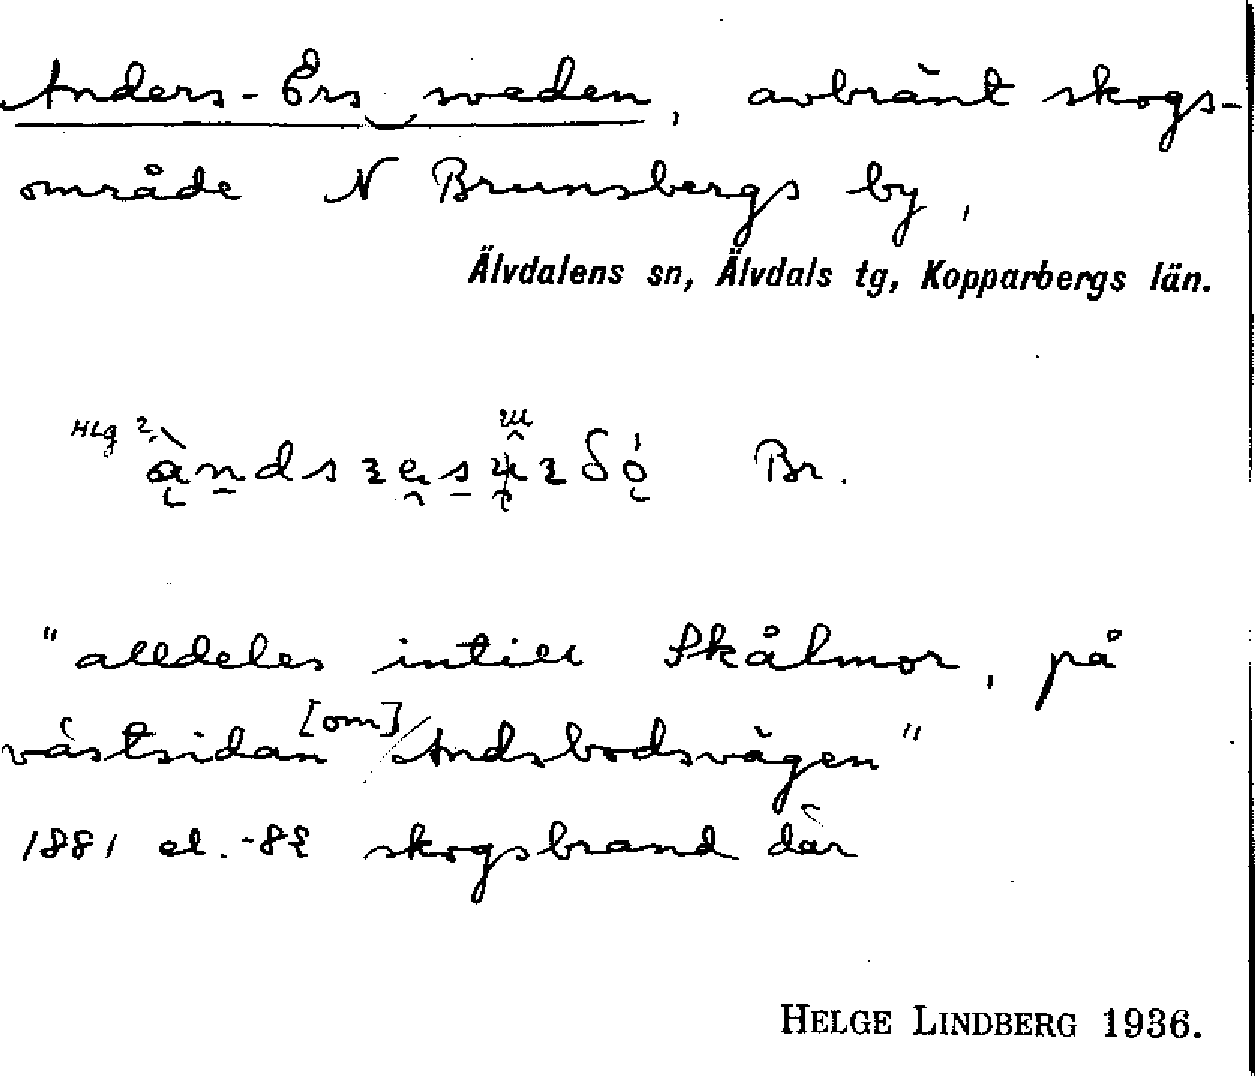 Anders-Ers sveden, avbränt skogs-
område N Brunsbergs by,
Älvdalens sn, Älvdals tg, Kopparbergs län.
Br.
"alldeles intill Skålmor, på
västsidan [om] Andsbodsvägen"
1881 el. -82 skogsbrand där
HELGE LINDBERG 1936.